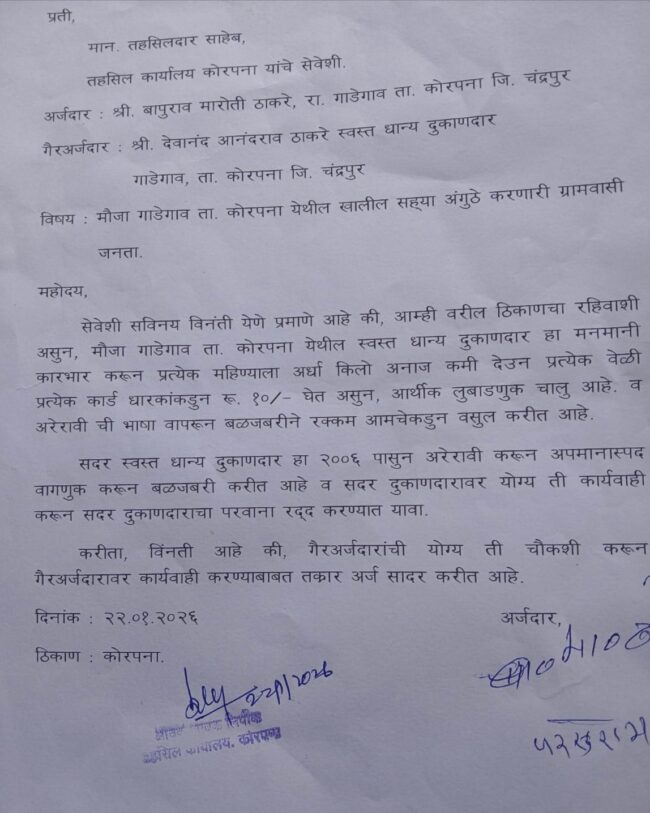 प्रती,
मान. तहसिलदार साहेब,
तहसिल कार्यालय कोरपना यांचे सेवेशी.
अर्जदार : श्री. बापुराव मारोती ठाकरे, रा. गाडेगाव ता. कोरपना जि. चंद्रपुर
गैरअर्जदार : श्री. देवानंद आनंदराव ठाकरे स्वस्त धान्य दुकाणदार
गाडेगाव, ता. कोरपना जि. चंद्रपुर
विषय : मौजा गाडेगाव ता. कोरपना येथील खालील सह्या अंगुठे करणारी ग्रामवासी
जनता.
महोदय,
सेवेशी सविनय विनंती येणे प्रमाणे आहे की, आम्ही वरील ठिकाणचा रहिवाशी
असुन, मौजा गाडेगाव ता. कोरपना येथील स्वस्त धान्य दुकाणदार हा मनमानी
कारभार करून प्रत्येक महिण्याला अर्धा किलो अनाज कमी देउन प्रत्येक वेळी
प्रत्येक कार्ड धारकांकडुन रू. १०/- घेत असुन, आर्थीक लुबाडणुक चालु आहे. व
अरेरावी ची भाषा वापरून बळजबरीने रक्कम आमचेकडुन वसुल करीत आहे.
सदर स्वस्त धान्य दुकाणदार हा २००६ पासुन अरेरावी करून अपमानास्पद
वागणुक करून बळजबरी करीत आहे व सदर दुकाणदारावर योग्य ती कार्यवाही
करून सदर दुकाणदाराचा परवाना रद्द करण्यात यावा.
करीता, विंनती आहे की, गैरअर्जदारांची योग्य ती चौकशी करून
गैरअर्जदारावर कार्यवाही करण्याबाबत तकार अर्ज सादर करीत आहे.
दिनांक : २२.०१.२०२६
अर्जदार,
ठिकाण : कोरपना.
तहसिल कार्यालय, कोरपना